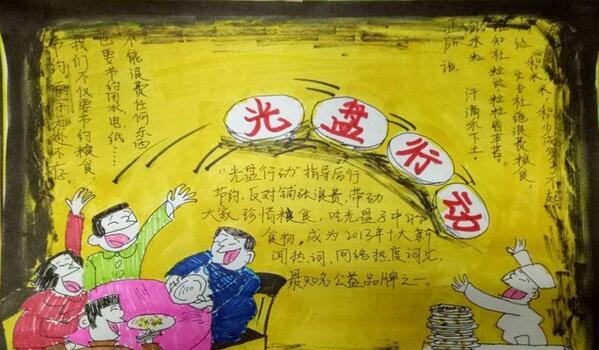 光盘行动
"光盘行动"指导厉行
节约,反对铺张浪费,带动
大家珍惜粮食,吃光盘子中的
食物,成为2013年十大新
闻热词,网络热度词汇,
最知名公益品牌之一。
不能浪费任何东西
也要节约用水电纸……
我们不仅要节约粮食,
节约
积米 积少成多
杜绝浪费粮食,
粒粒皆辛苦。
汗滴禾下土。